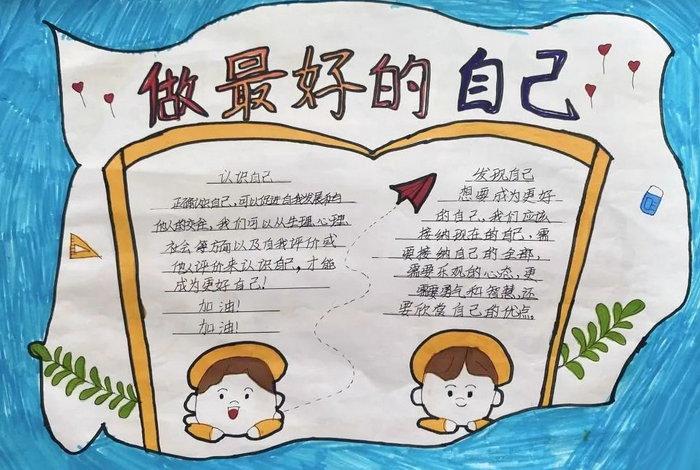 做最好的自己
认识自己
正确认识自己,可以促进自我发展和与
他人的交往,我们可以从生理、心理、
社会等方面以及自我评价或
他人评价来认识自己,才能
成为更好自己!
加油!
加油!
发现自己
想要成为更好
的自己,我们应该
接纳现在的自己,需
要接纳自己的全部,
需要乐观的心态,更
需要勇气和智慧,还
要欣赏自己的优点。